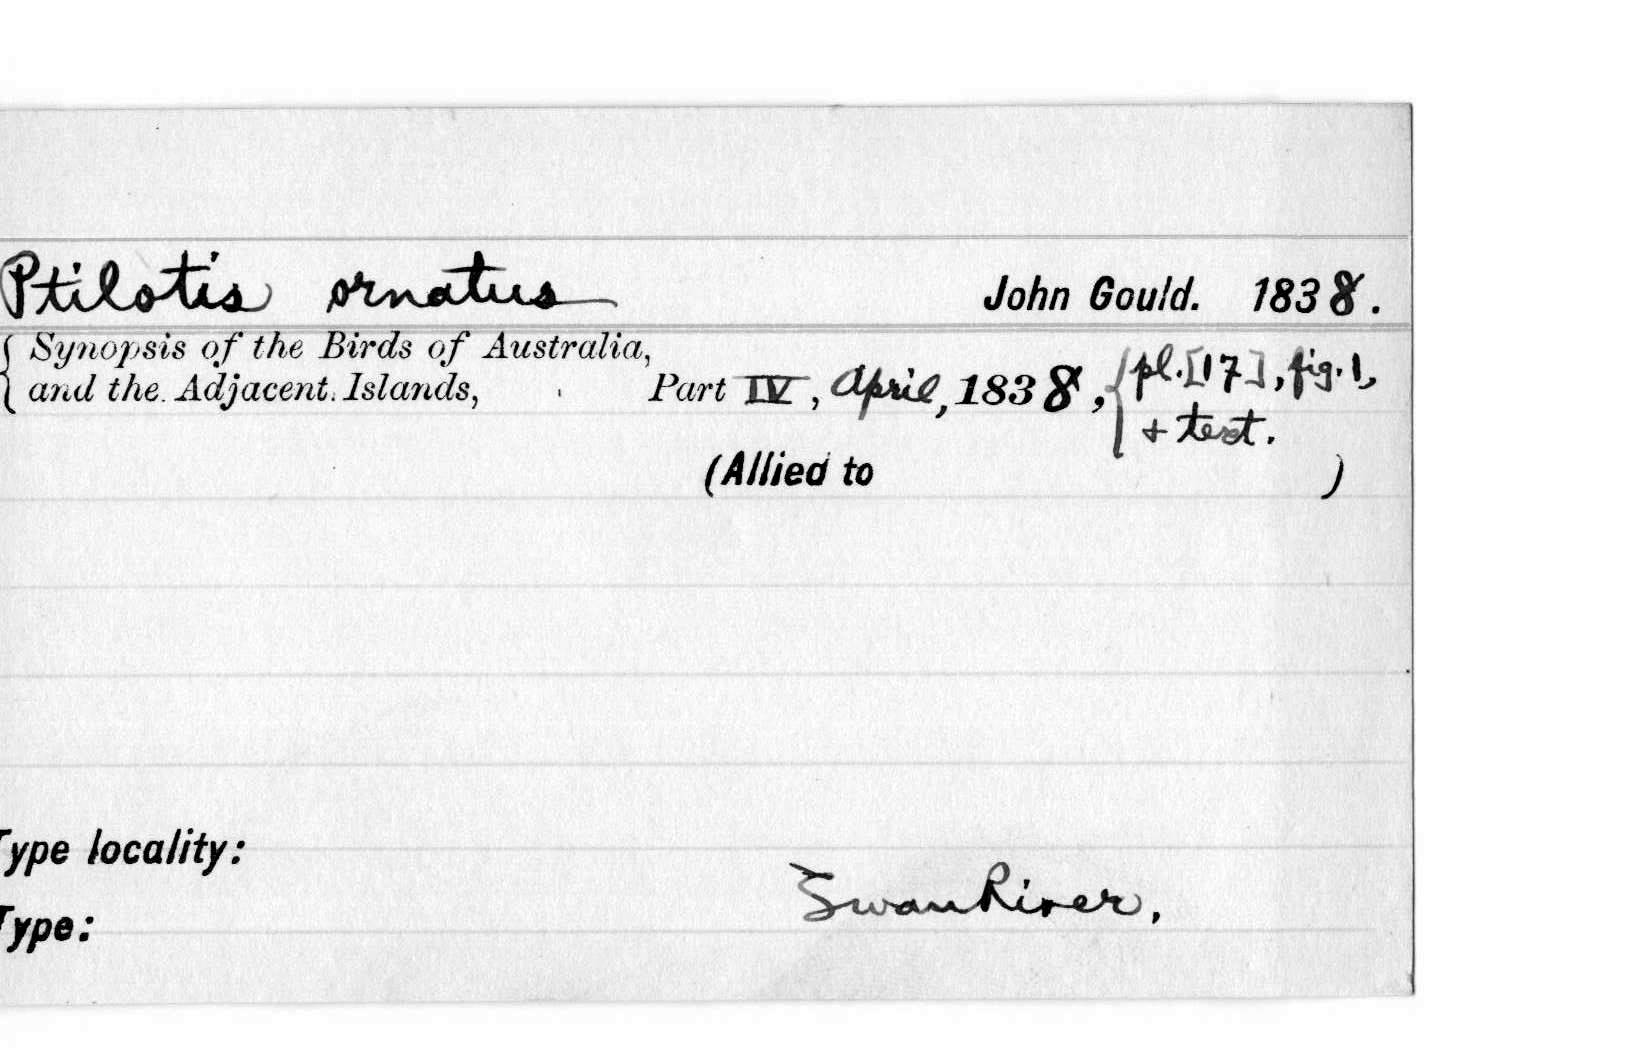 Ptilotis ornatus John Gould. 1838.
{ Synopsis of the Birds of Australia,
and the Adjacent Islands, Part IV, April, 1838, { pl. [17], fig. 1,
+ text.
(Allied to )
Type locality:
Swan River.
Type: